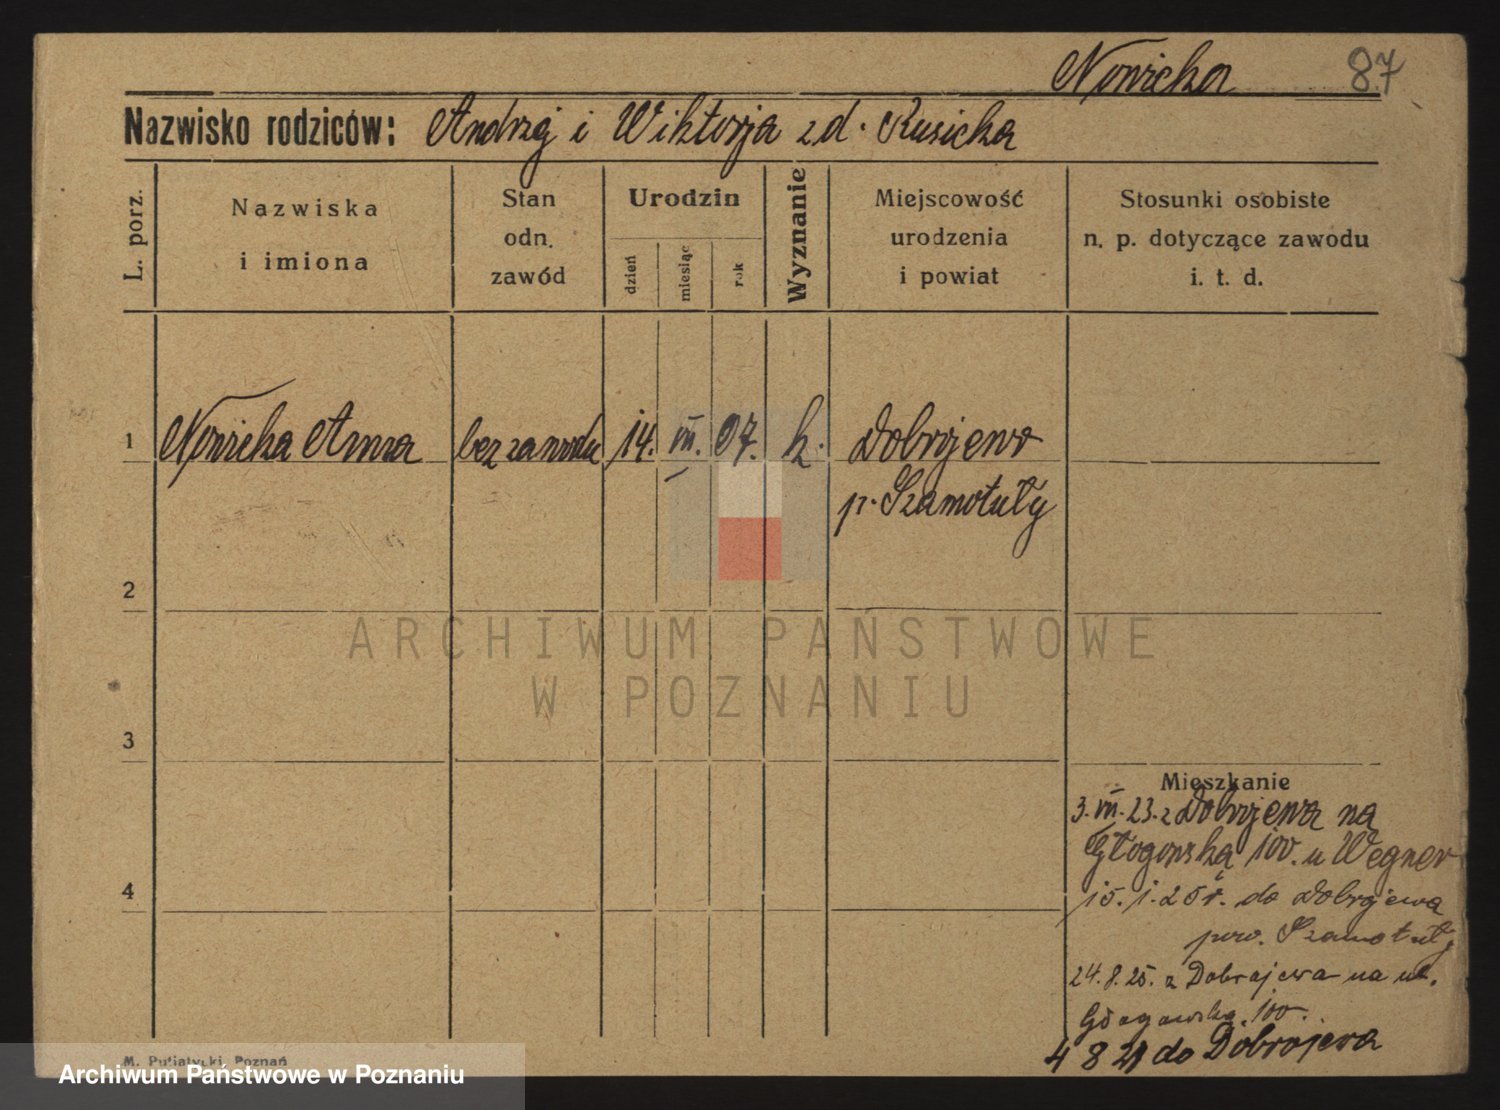 Nowicka 87
Nazwisko rodziców: Andrzej i Wiktorja zd. Kusicka
L. porz.
Nazwiska
i imiona
Stan
odn.
zawód
Urodzin
dzień
miesiąc
rok
Wyznanie
Miejscowość
urodzenia
i powiat
Stosunki osobiste
n. p. dotyczące zawodu
i. t. d.
1 Nowicka Anna bez zawodu 14. VII. 07. k. Dobrojewo
p. Szamotuły
2
3
4
ARCHIWUM PAŃSTWOWE
W POZNANIU
Mieszkanie
3. VII. 23. z Dobrojewa na
Głogowską 100. u Wegner
15. 1. 25 r. do Dobrojewa
pow. Szamotuły
24. 8. 25. z Dobrojewa na ul.
Głogowską. 100.
4 8 do Dobrojewa
M. Putiatycki, Poznań
Archiwum Państwowe w Poznaniu